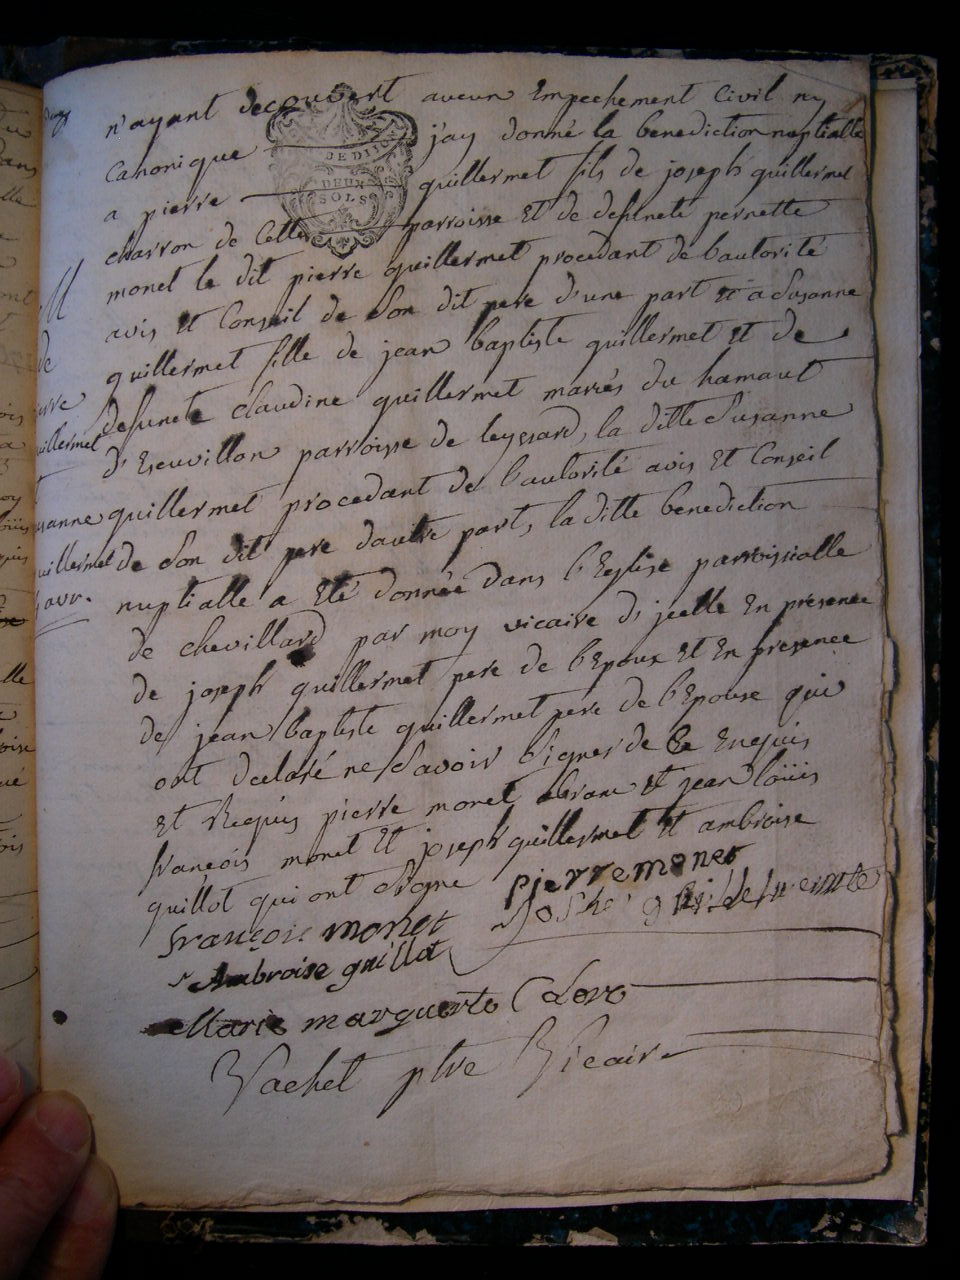 n'ayant decouvert aucun Empechement Civil ny
Canonique j'ay donné la benediction nuptialle
DE DIJON
DEUX
SOLS
a pierre guillermet fils de joseph guillermet
charron de Cette parroisse Et de defunete pernette
monet le dit pierre guillermet procedant de l'autorité
avis Et Conseil de Son dit pere d'une part Et a Susanne
guillermet fille de jean baptiste guillermet Et de
defunete claudine guillermet mariés du hamaut
d'Escuvillon parroisse de leyssard, la ditte Susanne
guillermet procedant de l'autorité avis Et Conseil
de Son dit pere d'autre part, la ditte benediction
nuptialle a Eté donnée dans l'Eglise parroissialle
de chevillard par moy vicaire d'icelle En presence
de joseph guillermet pere de l'Epoux Et En presence
de jean baptiste guillermet pere de l'Epouse qui
ont declaré ne Savoir Signer de Ce Enquis
Et Requis pierre monet, Et jean loüis
françois monet Et joseph guillermet Et ambroise
guillot qui ont Signe
pierre monet
françois monet
Ambroise guillot
Marie marguerite
Vachet ptre Vicaire